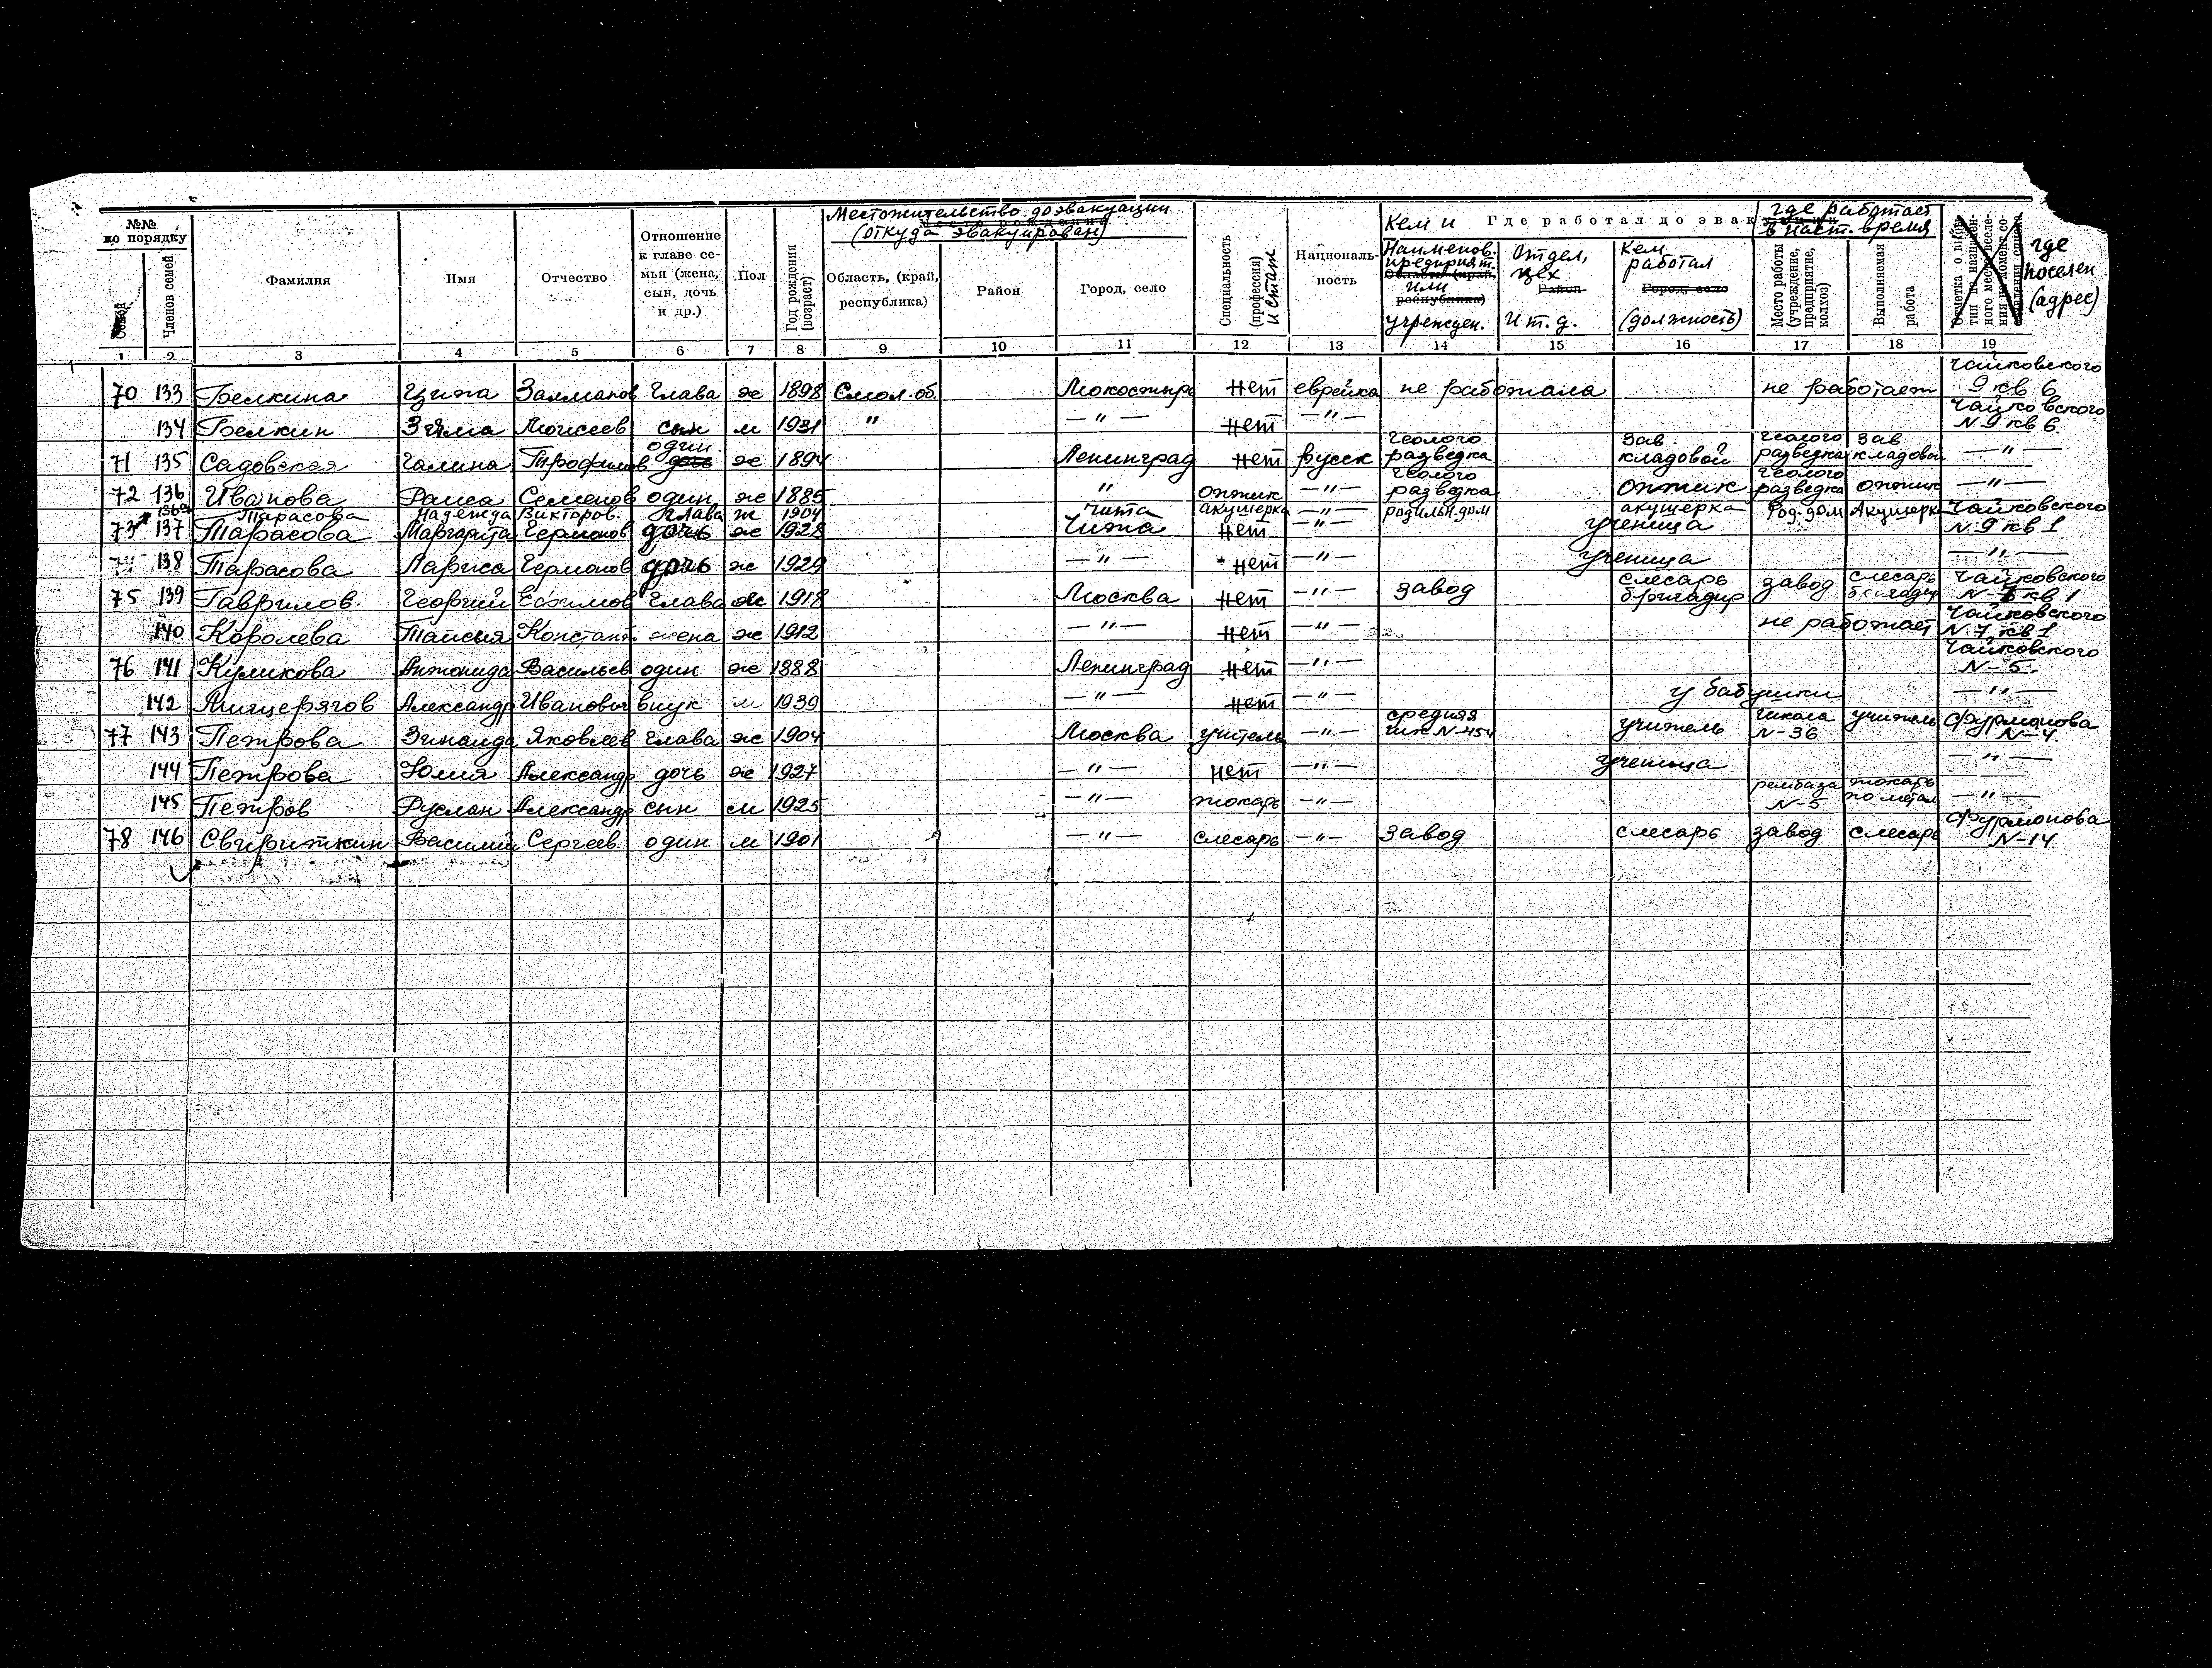 №№ по порядку
Семей
Членов семей
Фамилия
Имя
Отчество
Отношение к главе семьи (жена, сын, дочь и др.)
Пол
Год рождения (возраст)
Местожительство до эвакуации
(откуда эвакуирован)
Область, (край, республика)
Район
Город, село
Специальность (профессия) и стаж
Националь-ность
Кем и Где работал до эвакуации
Наименов. предприят. или учрежден.
Отдел, цех и т. д.
Кем работал (должность)
где работает в наст. время
Место работы (учреждение, предприятие, колхоз)
Выполняемая работа
где поселен (адрес)
1 2 3 4 5 6 7 8 9 10 11 12 13 14 15 16 17 18 19
70 133 Белкина Залманов Глава ж 1898 Смол. об. нет еврейка не работала не работает Чайковского 9 кв 6
134 Белкин Зяма Моисеев сын м 1931 " — " — нет — " — Чайковского N 9 кв 6
71 135 Садовская Галина Трофимов один ж 1894 Ленинград нет русск геолого разведка зав. кладовой геолого разведка зав кладовой — " —
72 136 Иванова Раиса Семенов один ж 1885 " оптик — " — геолого разведка оптик геолого разведка оптик — " —
136а Тарасова Надежда Викторов. глава ж 1904 Чита акушерка — " — родильн. дом акушерка Род. дом Акушерка Чайковского N 9 кв 1
73 137 Тарасова Маргарита Германов дочь ж 1928 Чита нет — " — ученица
138 Тарасова Лариса Германов дочь ж 1929 — " — нет — " — ученица — " —
75 139 Гаврилов Георгий Ефимов Глава ж 1918 Москва нет — " — завод слесарь бригадир завод слесарь бригадир Чайковского кв 1
140 Королева Таисья Констант. жена ж 1912 — " — нет — " — не работает Чайковского N 7 кв 1
76 141 Куликова Антонида Васильев один ж 1888 Ленинград нет — " — Чайковского N-5.
142 Александр Иванович внук м 1939 — " — нет — " — у бабушки — " —
77 143 Петрова Зинаида Яковлев глава ж 1904 Москва учитель — " — средняя шк N-454 учитель школа N-36 учитель Фурмонова N-4.
144 Петрова Юлия Александр дочь ж 1927 — " — нет — " — ученица — " —
145 Петров Руслан Александр сын м 1925 — " — токарь — " — рембаза N-5 токарь по метал — " —
78 146 Свириткин Василий Сергеев один м 1901 — " — слесарь — " — Завод слесарь завод слесарь Фурмонова N-14